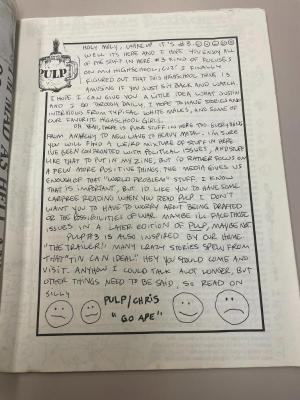 HOLY MOLY, WHAT IT'S #3.
WELL IT'S HERE AND I HOPE YOU ENJOY ALL
OF THE STUFF IN HERE #3 KIND OF FOCUSES
ON MY HIGHSCHOOL, CUZ' I FINALLY
PULP
FIGURED OUT THAT THIS HIGHSCHOOL THING IS
AMUSING IF YOU JUST SIT BACK AND WATCH.
I HOPE I CAN GIVE YOU A LITTLE IDEA WHAT JUSTIN
AND I GO THROUGH DAILY, I HOPE TO HAVE STORIES AND
INTERVIEWS FROM TYPICAL WHITE MALES, AND SOME OF
OUR FAVORITE HIGHSCHOOL GIRLS.
OH YEAH, THERE IS PUNK STUFF IN HERE TOO. EVERYTHING
FROM ANARCHY TO NEW WAVE TO HEAVY METAL. I'M SURE
YOU WILL FIND A WEIRD MIXTURE OF STUFF IN HERE
I'VE BEEN CONFRONTED WITH POLITICAL ISSUES, AND STUFF
LIKE THAT TO PUT IN MY ZINE, BUT I'D RATHER FOCUS ON
A FEW MORE POSITIVE THINGS. THE MEDIA GIVES US
ENOUGH OF THAT "WORLD PROBLEM" STUFF. I KNOW
THAT IS IMPORTANT, BUT I'D LIKE YOU TO HAVE SOME
CAREFREE READING WHEN YOU READ PULP I DON'T
WANT YOU TO HAVE TO WORRY ABOUT BEING DRAFTED
OR THE POSSIBILITIES OF WAR MAYBE ILL FACE THOSE
ISSUES IN A LATER EDITION OF PULP, MAYBE NOT
PULP #3 IS ALSO INSPIRED BY OUR HOME.
"THE TRAILER"! MANY CRAZY STORIES SPEW FROM
THAT "TIN CAN IDEAL" HEY YOU SHOULD COME AND
VISIT. ANYHOW I COULD TALK ALOT LONGER, BUT
OTHER THINGS NEED TO BE SAID, SO READ ON
SILLY
PULP/CHRIS
"GO APE"